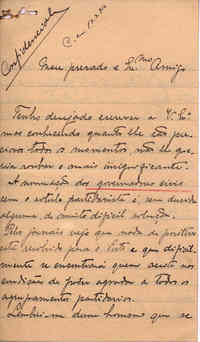 Confidencial
Meu presado e Ex.mo Amigo
Tenho desejado escrever a V.ª Ex.ª
mas conhecendo quanto lhe são pre-
ciosos todos os momentos não lhe que-
ria roubar o mais insignificante.
A nomeação dos governadores civis
com o critério partidarista é, sem duvida
alguma, de muito dificil solução.
Pelos jornais vejo que nada de positivo
está resolvido para o Porto e que dificil-
mente se encontrará quem esteja nas
condições de poder agradar a todos os
agrupamentos partidarios.
Lembrei-me dum homem que se